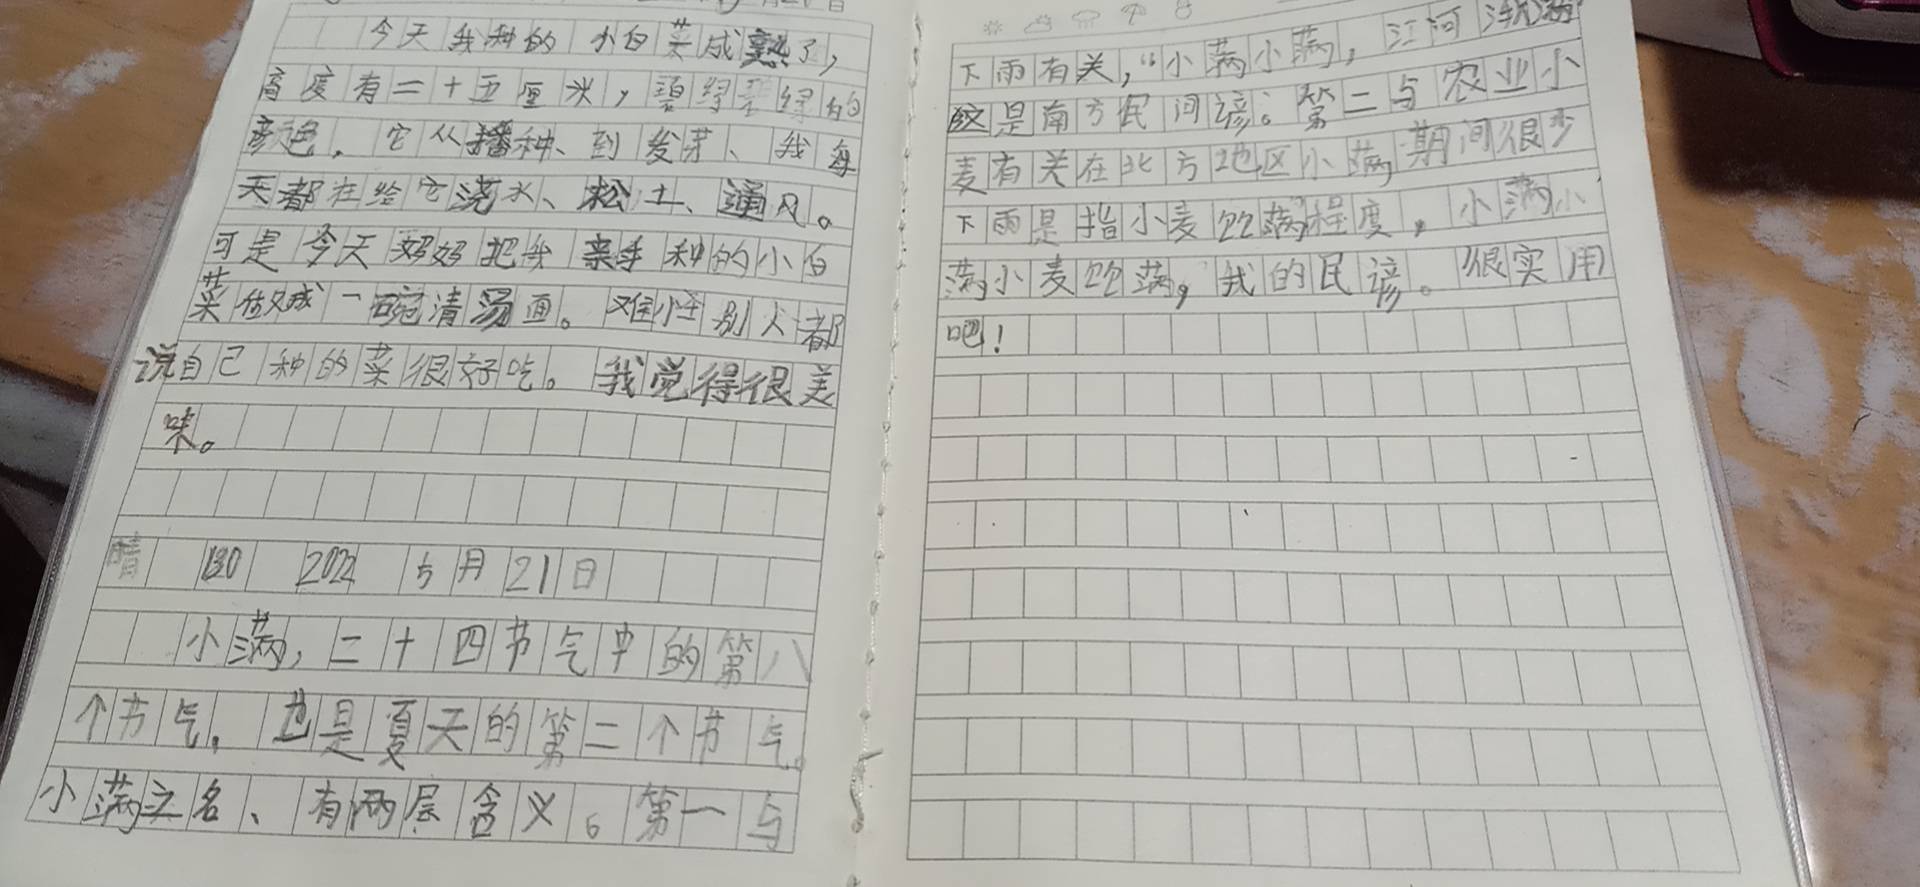 今天我种的小白菜成熟了，
高度有二十五厘米，碧绿碧绿的
颜色。它从播种、到发芽、我每
天都在给它浇水、松土、通风。
可是今天妈妈把我亲手种的小白
菜做成一碗清汤面。难怪别人都
说自己种的菜很好吃。我觉得很美
味。
晴 130 2022 5月21日
小满，二十四节气中的第八
个节气，也是夏天的第二个节气。
小满之名、有两层含义。第一与
下雨有关，“小满小满，江河渐满
这是南方民间谚。第二与农业小
麦有关在北方地区小满期间很少
下雨是指小麦饱满程度，小满小
满小麦饱满，我的民谚。很实用
吧！